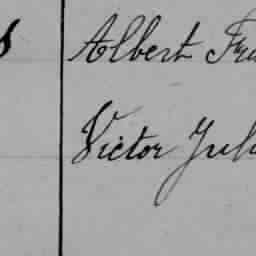 Albert Fra
Victor Jul